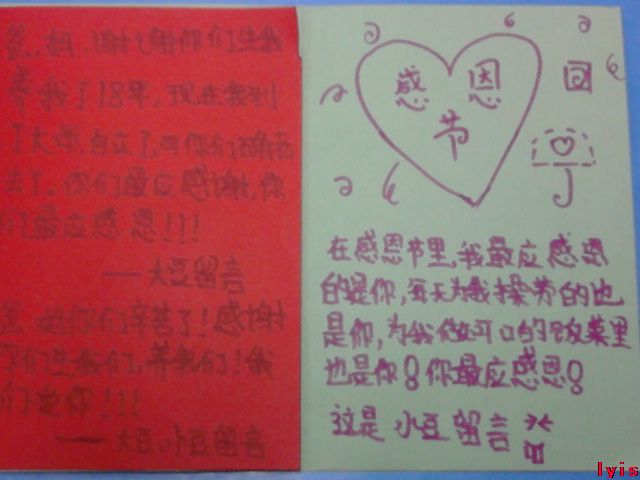 爸,妈,谢谢你们生我
养我了18年,现在我到
了大学,自立了,可你们
去了。你们最应感谢,你
们最应感恩!!!
——大豆留言
爸 妈你们辛苦了!感谢
你们生我们,养我们!我
们爱你!!!
——大豆,小豆留言
感恩
节
在感恩节里,我最应感恩
的是你,每天为我操劳的也
是你,为我做可口的饭菜里
也是你!你最应感恩!
这是 小豆留言
lyis